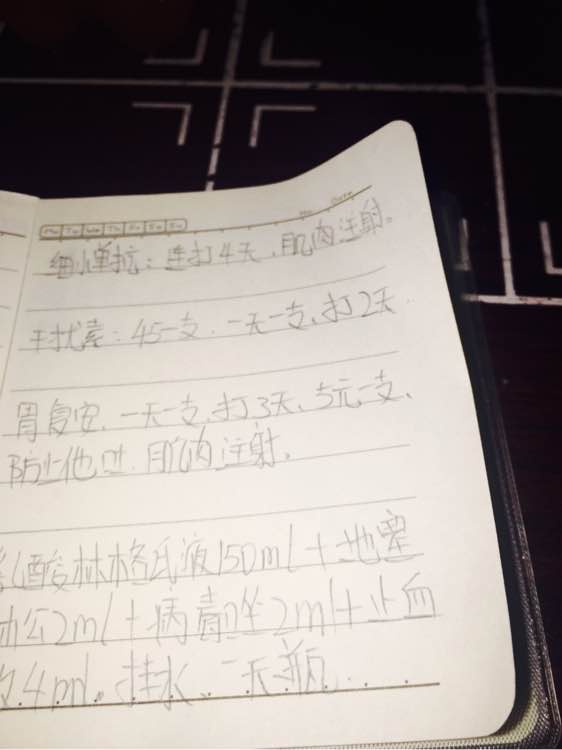 Mo Tu We Th Fr Sa Su
No. Date
细小单抗：连打4天，肌肉注射。
干扰素：45一支．一天一支、打2天．
胃复安、一天一支、打3天、5元一支、
防止他吐．肌肉注射．
乳酸林格氏液150ml＋地塞
2ml＋病毒唑2ml＋止血
4ml。挂水、一天瓶．